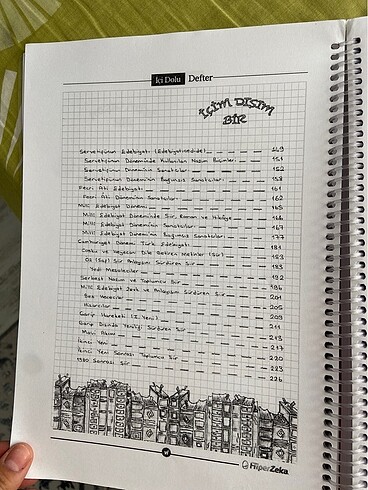 İçi Dolu Defter
İÇİM DIŞIM
BİR
Servetifünun Edebiyatı (Edebiyatıcedide) 149
Servetifünun Döneminde Kullanılan Nazım Biçimleri 151
Servetifünun Döneminin Sanatçıları 152
Servetifünun Döneminin Bağımsız Sanatçıları 158
Fecri Ati Edebiyatı 161
Fecri Ati Dönemin Sanatçıları 162
Milli Edebiyat Dönemi 165
Milli Edebiyat Döneminde Şiir, Roman ve Hikaye 166
Milli Edebiyat Döneminin Sanatçıları 169
Milli Edebiyat Döneminin Bağımsız Sanatçıları 177
Cumhuriyet Dönemi Türk Edebiyatı 181
Coşku ve Heyecanı Dile Getiren Metinler (Şiir) 183
Öz (Saf) Şiir Anlayışını Sürdüren Şiir 183
Yedi Meşaleciler 192
Serbest Nazım ve Toplumcu Şiir 196
Milli Edebiyat Zevk ve Anlayışını Sürdüren Şiir 201
Beş Hececiler 205
Hisarcılar 209
Garip Hareketi (I. Yeni) 211
Garip Dışında Yeniliği Sürdüren Şiir 213
Mavi Akımı 217
İkinci Yeni 220
İkinci Yeni Sonrası Toplumcu Şiir 223
1980 Sonrası Şiir 226
FilperZeka